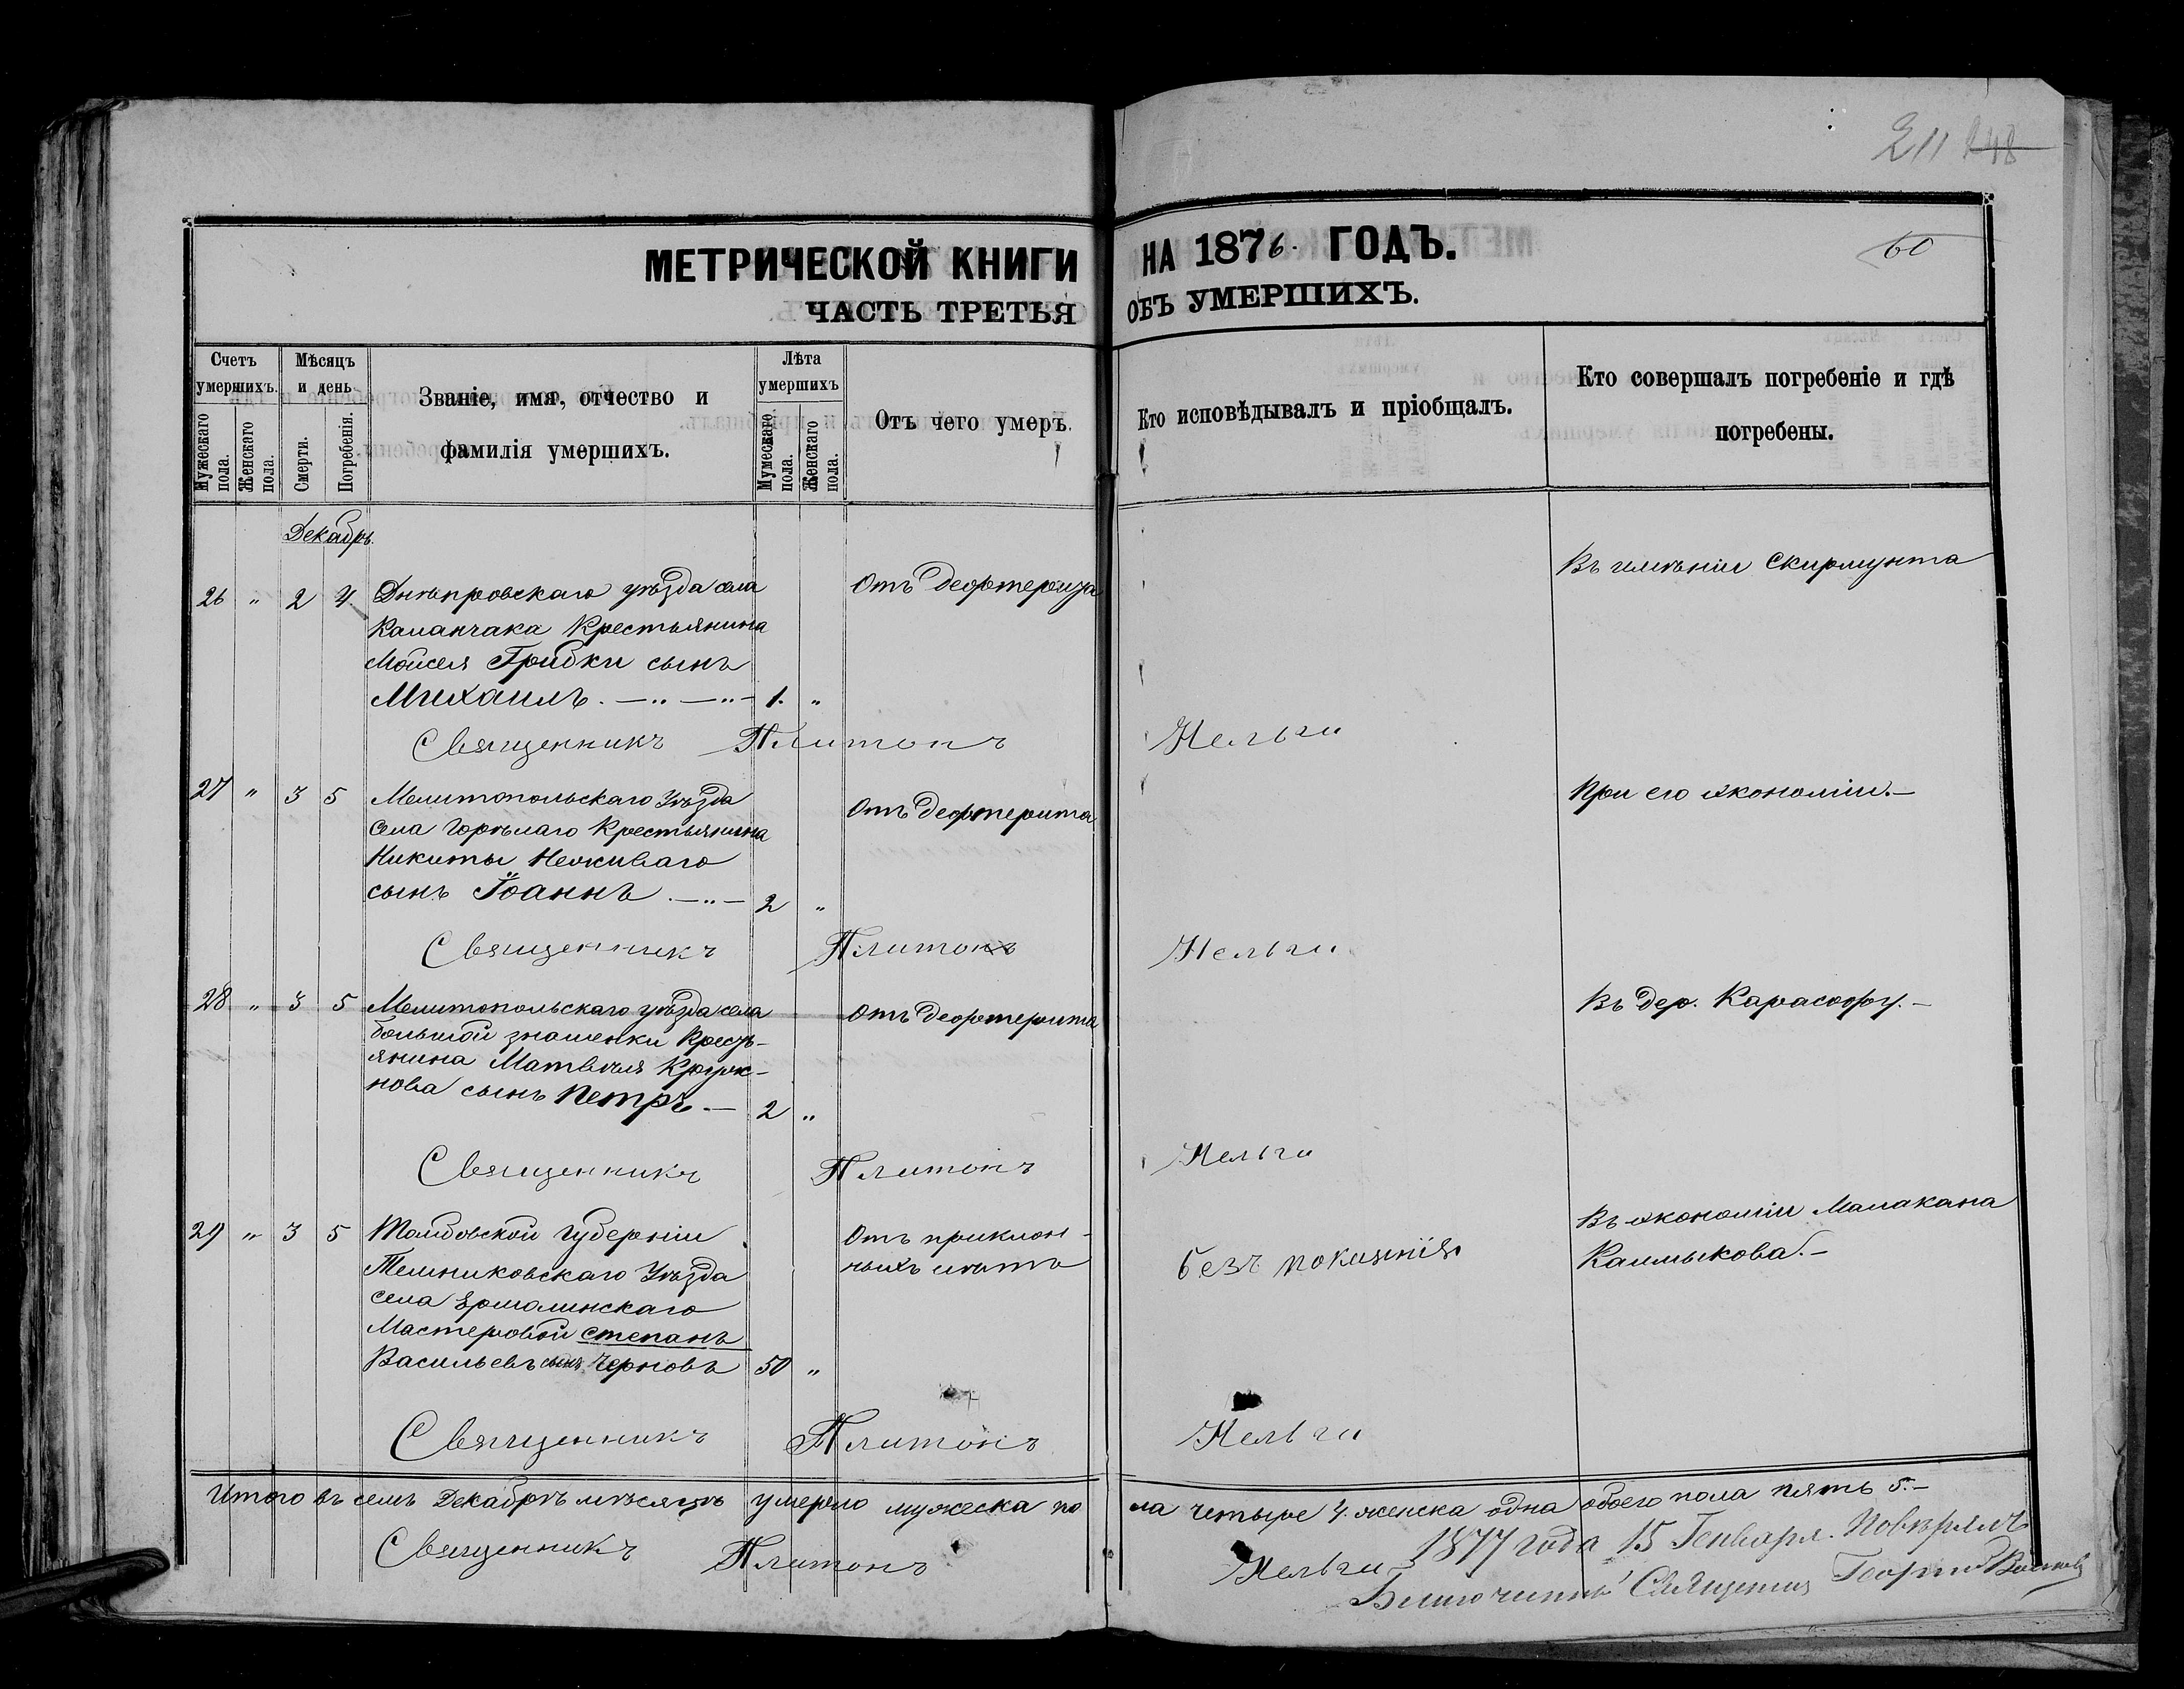 211 248
МЕТРИЧЕСКОЙ КНИГИ НА 1876. ГОДЪ.
60
ЧАСТЬ ТРЕТЬЯ ОБЪ УМЕРШИХЪ.
Счетъ умершихъ.
Мужескаго пола.
Женскаго пола.
Мѣсяцъ и день
Смерти.
Погребенія.
Званіе, имя, отчество и
фамилія умершихъ.
Лѣта умершихъ
Мужескаго пола.
Женскаго пола.
Отъ чего умеръ.
Кто исповѣдывалъ и пріобщалъ.
Кто совершалъ погребеніе и гдѣ
погребены.
Декабрь
26 " 2 4. Днѣпровскаго уѣзда села
Каланчака Крестьянина
Моисея Грибки сынъ
Михаилъ. 1. "
Отъ дефтерита
Въ имѣніи Скирмунта
Священникъ Платонъ
27 " 3 5 Мелитопольскаго Уѣзда
села Горѣлаго Крестьянина
Никиты Неживаго
сынъ Іоаннъ 2 "
Отъ дефтерита
При его экономіи.
Священникъ Платонъ
28 " 3 5 Мелитопольскаго уѣзда села
большой знаменки Кресть-
янина Матвѣя
нова сынъ Петръ 2 "
Отъ дефтерита
Въ дер.
Священникъ Платонъ
29 " 3 5 Тамбовской губерніи
Темниковскаго Уѣзда
села Ермалинскаго
Мастеровой Степанъ
Васильевъ сынъ Черновъ 50 "
Отъ приклон-
ныхъ лѣтъ
безъ покаянія
Въ экономіи Малакана
Калмыкова.
Священникъ Платонъ
Итого въ семъ Декабрѣ мѣсяцѣ умерло мужеска по ла четыре 4. женска одна обоего пола пять 5.
Священникъ Платонъ
1877 года 15 Генваря. Повѣрялъ
Благочинный Священникъ Георгій